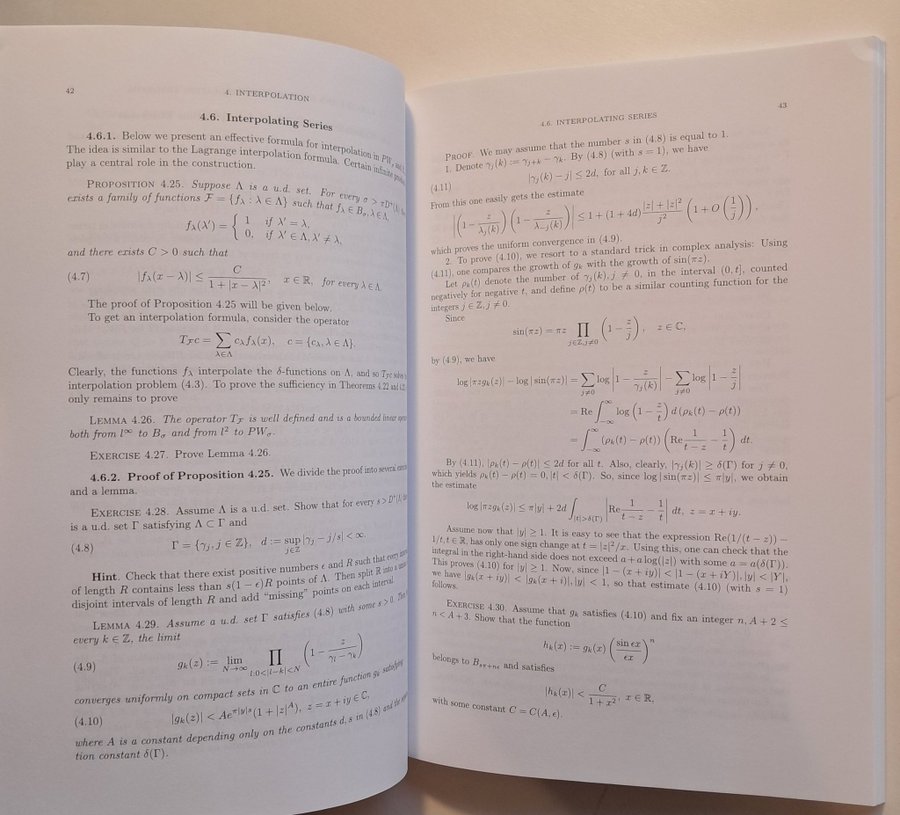 42
4. INTERPOLATION
4.6. Interpolating Series
4.6.1. Below we present an effective formula for interpolation in PW_σ and
The idea is similar to the Lagrange interpolation formula. Certain infinite
play a central role in the construction.
PROPOSITION 4.25. Suppose Λ is a u.d. set. For every σ > πD⁺(Λ)
exists a family of functions F = {f_λ : λ ∈ Λ} such that f_λ ∈ B_σ, λ ∈ Λ,
f_λ(λ′) = { 1 if λ′ = λ,
0, if λ′ ∈ Λ, λ′ ≠ λ,
and there exists C > 0 such that
(4.7) |f_λ(x − λ)| ≤ C / (1 + |x − λ|²), x ∈ ℝ, for every λ ∈ Λ.
The proof of Proposition 4.25 will be given below.
To get an interpolation formula, consider the operator
T_F c = ∑_{λ∈Λ} c_λ f_λ(x), c = {c_λ, λ ∈ Λ}.
Clearly, the functions f_λ interpolate the δ-functions on Λ, and so T_F c
interpolation problem (4.3). To prove the sufficiency in Theorems 4.22 and
only remains to prove
LEMMA 4.26. The operator T_F is well defined and is a bounded linear
both from l^∞ to B_σ and from l² to PW_σ.
EXERCISE 4.27. Prove Lemma 4.26.
4.6.2. Proof of Proposition 4.25. We divide the proof into several
and a lemma.
EXERCISE 4.28. Assume Λ is a u.d. set. Show that for every s > D⁺(Λ)
is a u.d. set Γ satisfying Λ ⊂ Γ and
(4.8) Γ = {γ_j, j ∈ ℤ}, d := sup_{j∈ℤ} |γ_j − j/s| < ∞.
Hint. Check that there exist positive numbers ϵ and R such that every
of length R contains less than s(1 − ϵ)R points of Λ. Then split ℝ into
disjoint intervals of length R and add "missing" points on each interval.
LEMMA 4.29. Assume a u.d. set Γ satisfies (4.8) with some s > 0.
every k ∈ ℤ, the limit
(4.9) g_k(z) := lim_{N→∞} ∏_{l:0<|l−k|<N} (1 − z / (γ_l − γ_k))
converges uniformly on compact sets in ℂ to an entire function g_k satisfying
(4.10) |g_k(z)| < Ae^{π|y|s}(1 + |z|^A), z = x + iy ∈ ℂ,
where A is a constant depending only on the constants d, s in (4.8) and the
tion constant δ(Γ).
4.6. INTERPOLATING SERIES
43
PROOF. We may assume that the number s in (4.8) is equal to 1.
1. Denote γ_j(k) := γ_{j+k} − γ_k. By (4.8) (with s = 1), we have
(4.11) |γ_j(k) − j| ≤ 2d, for all j, k ∈ ℤ.
From this one easily gets the estimate
|(1 − z/λ_j(k)) (1 − z/λ_{−j}(k))| ≤ 1 + (1 + 4d) (|z| + |z|²)/j² (1 + O(1/j)),
which proves the uniform convergence in (4.9).
2. To prove (4.10), we resort to a standard trick in complex analysis: Using
(4.11), one compares the growth of g_k with the growth of sin(πz).
Let ρ_k(t) denote the number of γ_j(k), j ≠ 0, in the interval (0, t], counted
negatively for negative t, and define ρ(t) to be a similar counting function for the
integers j ∈ ℤ, j ≠ 0.
Since
sin(πz) = πz ∏_{j∈ℤ, j≠0} (1 − z/j), z ∈ ℂ,
by (4.9), we have
log |πz g_k(z)| − log | sin(πz)| = ∑_{j≠0} log |1 − z/γ_j(k)| − ∑_{j≠0} log |1 − z/j|
= Re ∫_{−∞}^{∞} log (1 − z/t) d (ρ_k(t) − ρ(t))
= ∫_{−∞}^{∞} (ρ_k(t) − ρ(t)) (Re 1/(t − z) − 1/t) dt.
By (4.11), |ρ_k(t) − ρ(t)| ≤ 2d for all t. Also, clearly, |γ_j(k)| ≥ δ(Γ) for j ≠ 0,
which yields ρ_k(t) − ρ(t) = 0, |t| < δ(Γ). So, since log | sin(πz)| ≤ π|y|, we obtain
the estimate
log |πz g_k(z)| ≤ π|y| + 2d ∫_{|t|>δ(Γ)} |Re 1/(t − z) − 1/t| dt, z = x + iy.
Assume now that |y| ≥ 1. It is easy to see that the expression Re(1/(t − z)) −
1/t, t ∈ ℝ, has only one sign change at t = |z|²/x. Using this, one can check that the
integral in the right-hand side does not exceed a + a log(|z|) with some a = a(δ(Γ)).
This proves (4.10) for |y| ≥ 1. Now, since |1 − (x + iy)| < |1 − (x + iY)|, |y| < |Y|,
we have |g_k(x + iy)| < |g_k(x + i)|, |y| < 1, so that estimate (4.10) (with s = 1)
follows.
EXERCISE 4.30. Assume that g_k satisfies (4.10) and fix an integer n, A + 2 ≤
n < A + 3. Show that the function
h_k(x) := g_k(x) (sin ϵx / ϵx)^n
belongs to B_{sπ+nϵ} and satisfies
|h_k(x)| < C / (1 + x²), x ∈ ℝ,
with some constant C = C(A, ϵ).